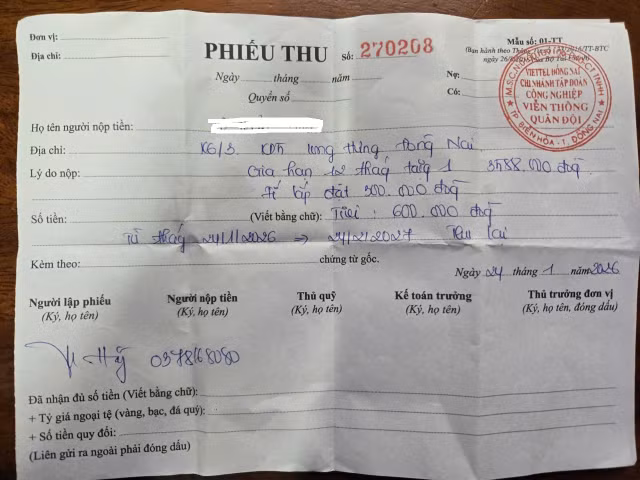 Đơn vị:
Địa chỉ:
PHIẾU THU
Số: 270208
Mẫu số: 01-TT
(Ban hành theo Thông
ngày 26/ Bộ Tài
Ngày tháng năm
Quyển số
Nợ:
Có:
VIETTEL ĐỒNG NAI
CHI NHÁNH TẬP ĐOÀN
CÔNG NGHIỆP
VIỄN THÔNG
QUÂN ĐỘI
TP BIÊN HÒA - T. ĐỒNG NAI
Họ tên người nộp tiền:
Địa chỉ: Đồng Nai
Lý do nộp: Gia hạn 12 tháng tặng 1 3588.000 đồng
lắp đặt 300.000 đồng
Số tiền: (Viết bằng chữ): 600.000 đồng
Từ tháng 24/1/2026 ⇒ 24/2/2027
Kèm theo: chứng từ gốc.
Ngày 24 tháng 1 năm 2026
Người lập phiếu Người nộp tiền Thủ quỹ Kế toán trưởng Thủ trưởng đơn vị
(Ký, họ tên) (Ký, họ tên) (Ký, họ tên) (Ký, họ tên) (Ký, họ tên, đóng dấu)
0378168080
Đã nhận đủ số tiền (Viết bằng chữ):
+ Tỷ giá ngoại tệ (vàng, bạc, đá quý):
+ Số tiền quy đổi:
(Liên gửi ra ngoài phải đóng dấu)